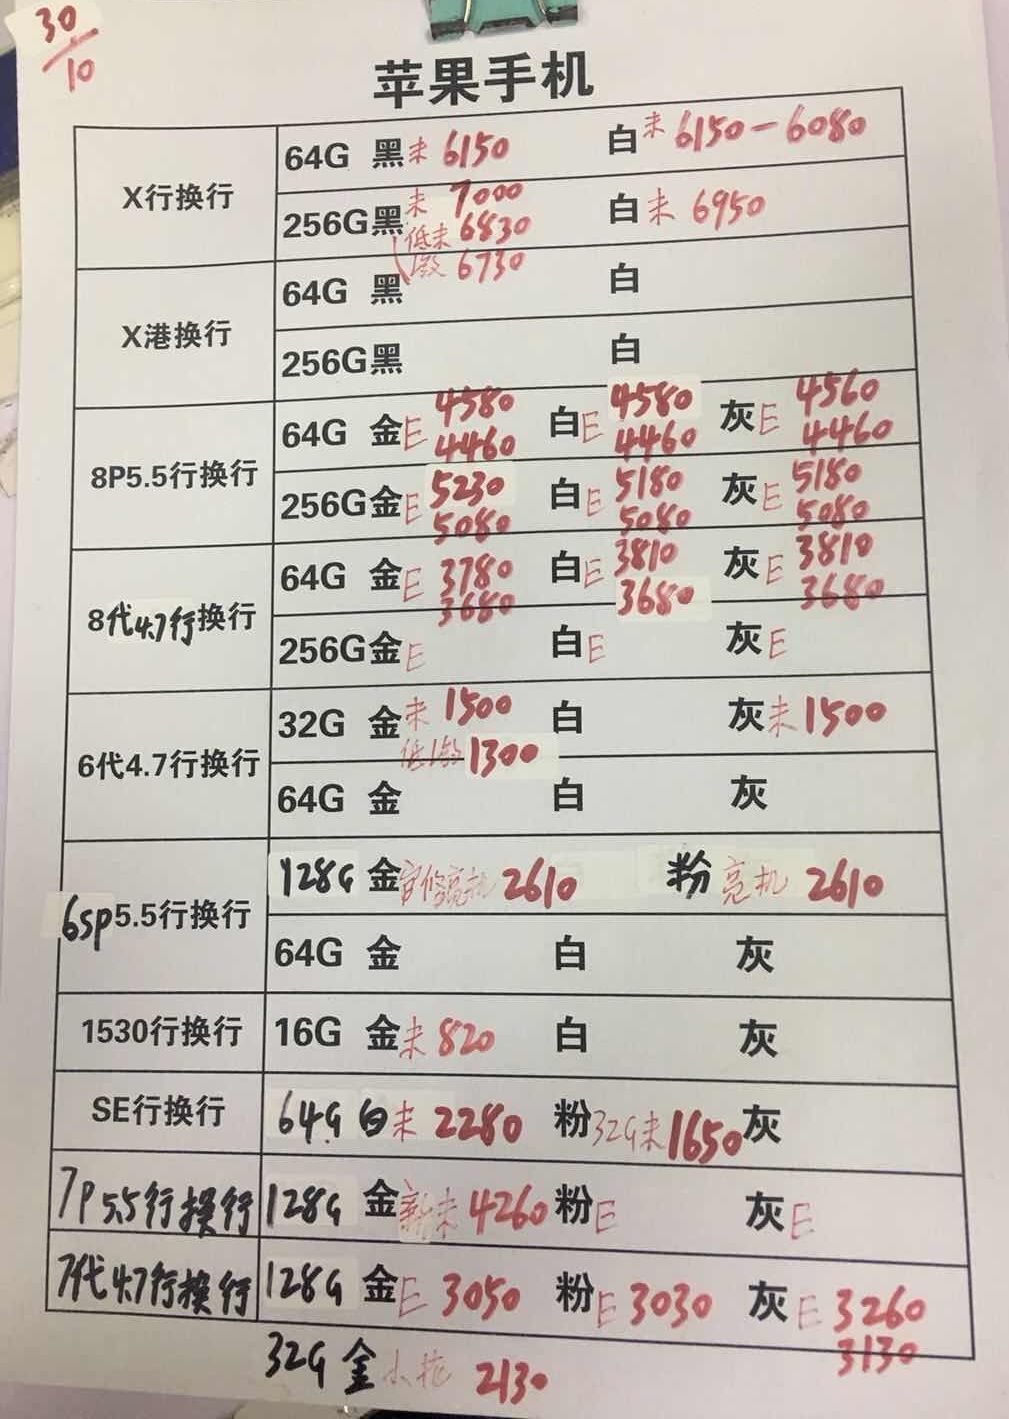 30/10
苹果手机
X行换行
64G 黑未 6150 白未 6150-6080
256G黑未 7000 白未 6950
低未 6830
1激 6730
X港换行
64G 黑 白
256G黑 白
8P5.5行换行
64G 金E 4580 白E 4580 灰E 4560
4460 4460 4460
256G金E 5230 白E 5180 灰E 5180
5080 5080 5080
8代4.7行换行
64G 金E 3780 白E 3810 灰E 3810
3680 3680 3680
256G金E 白E 灰E
6代4.7行换行
32G 金未 1500 白 灰未 1500
低1激 1300
64G 金 白 灰
6sp5.5行换行
128G 金官修亮机 2610 粉 亮机 2610
64G 金 白 灰
1530行换行
16G 金未 820 白 灰
SE行换行
64G 白未 2280 粉32G未1650灰
7P5.5行换行
128G 金新未 4260 粉E 灰E
7代4.7行换行
128G 金E 3050 粉E 3030 灰E 3260
3130
32G 金 小花 2130